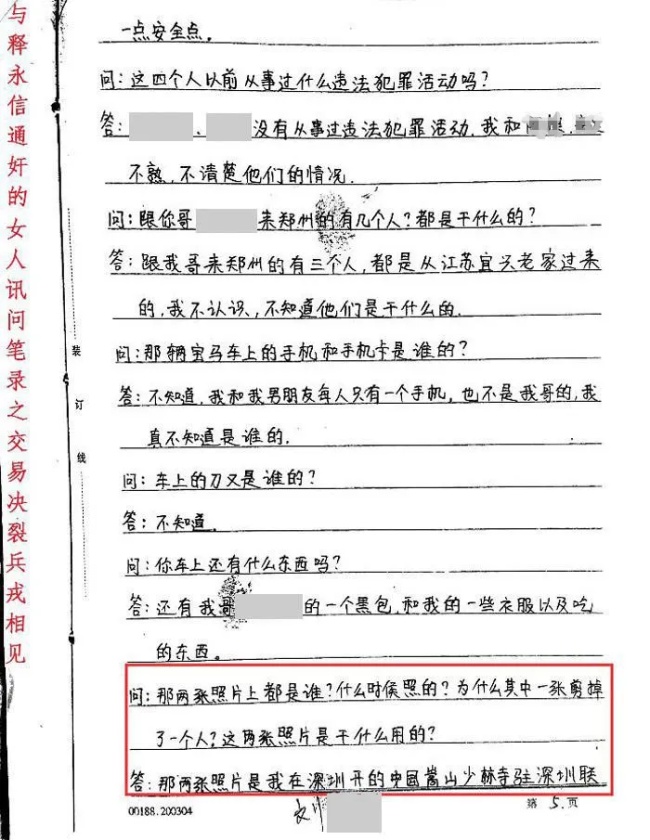 与释永信通奸的女人讯问笔录之交易决裂兵戎相见
装
订
线
一点安全点。
问:这四个人以前从事过什么违法犯罪活动吗?
答: 、 没有从事过违法犯罪活动,我和
不熟,不清楚他们的情况.
问:跟你哥 来郑州的有几个人?都是干什么的?
答:跟我哥来郑州的有三个人,都是从江苏宜兴老家过来
的,我不认识,不知道他们是干什么的.
问:那辆宝马车上的手机和手机卡是谁的?
答:不知道,我和我男朋友每人只有一个手机,也不是我哥的,我
真不知道是谁的.
问:车上的刀又是谁的?
答:不知道.
问:你车上还有什么东西吗?
答:还有我哥 的一个黑包,和我的一些衣服以及吃
的东西。
问:那两张照片上都是谁?什么时侯照的?为什么其中一张剪掉
了一个人?这两张照片是干什么用的?
答:那两张照片是我在深圳开的中国嵩山少林寺驻深圳联
00188.200304
第5.页